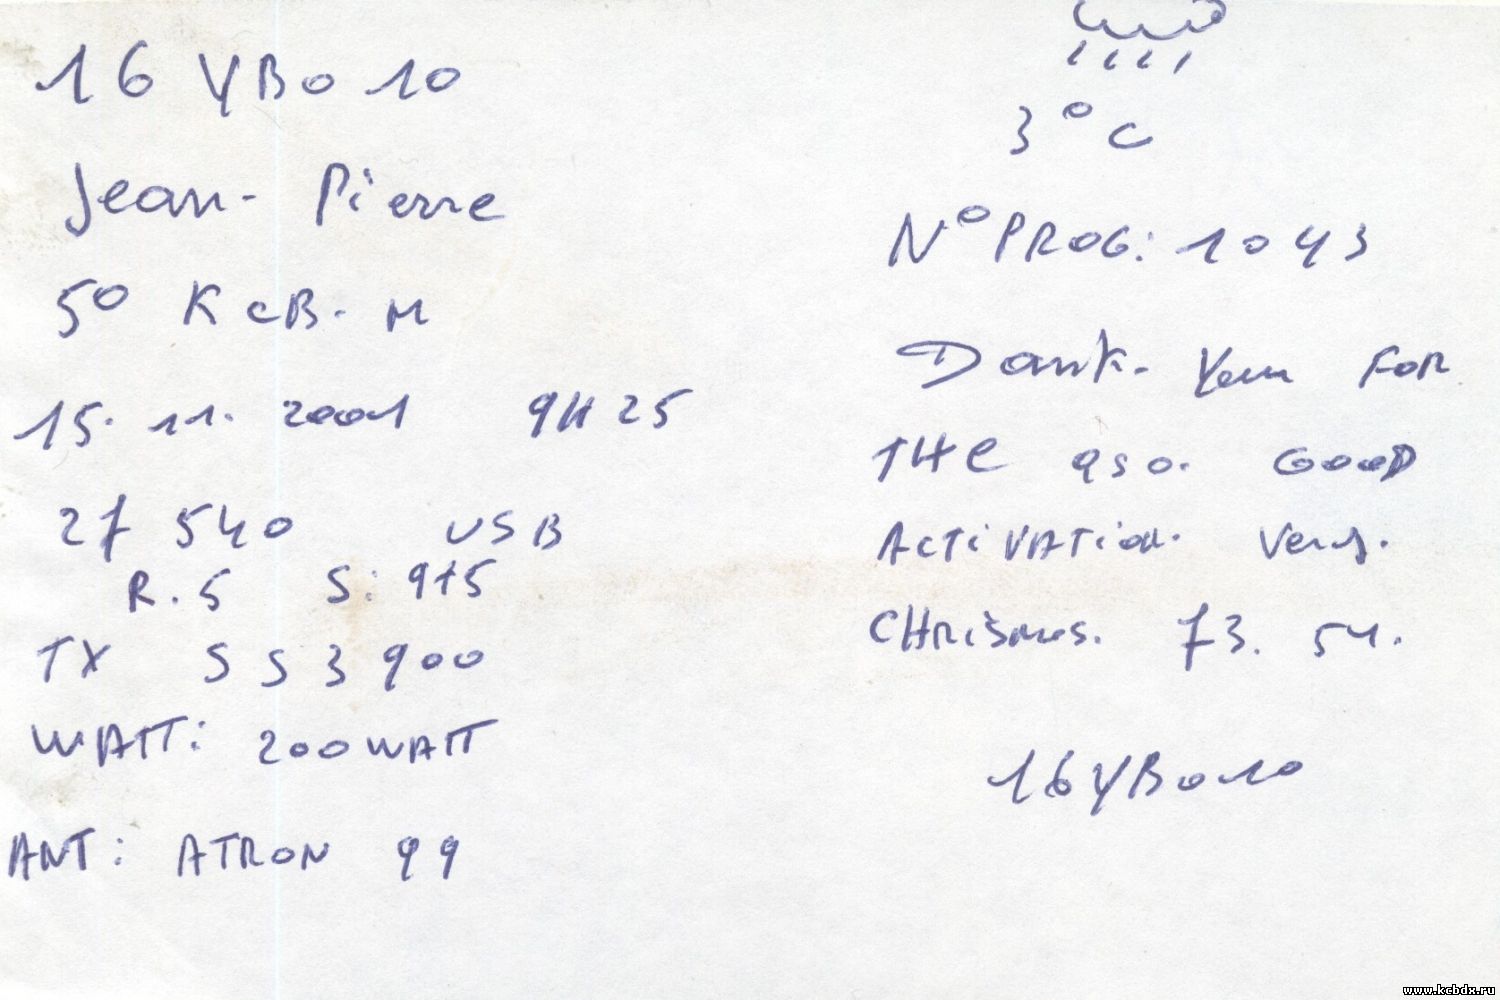 16 YBO 10
Jean-Pierre
50 KCB-M
15.11.2001 9H25
27 540 USB
R.5 S:9+5
TX SS3900
WATT: 200WATT
ANT: ATRON 99
3°C
N°PROG: 1043
Dank. FOR
THE QSO. GOOD
ACTIVATION.
CHRISMUS. 73. 51.
16YBO10
www.kcbdx.ru